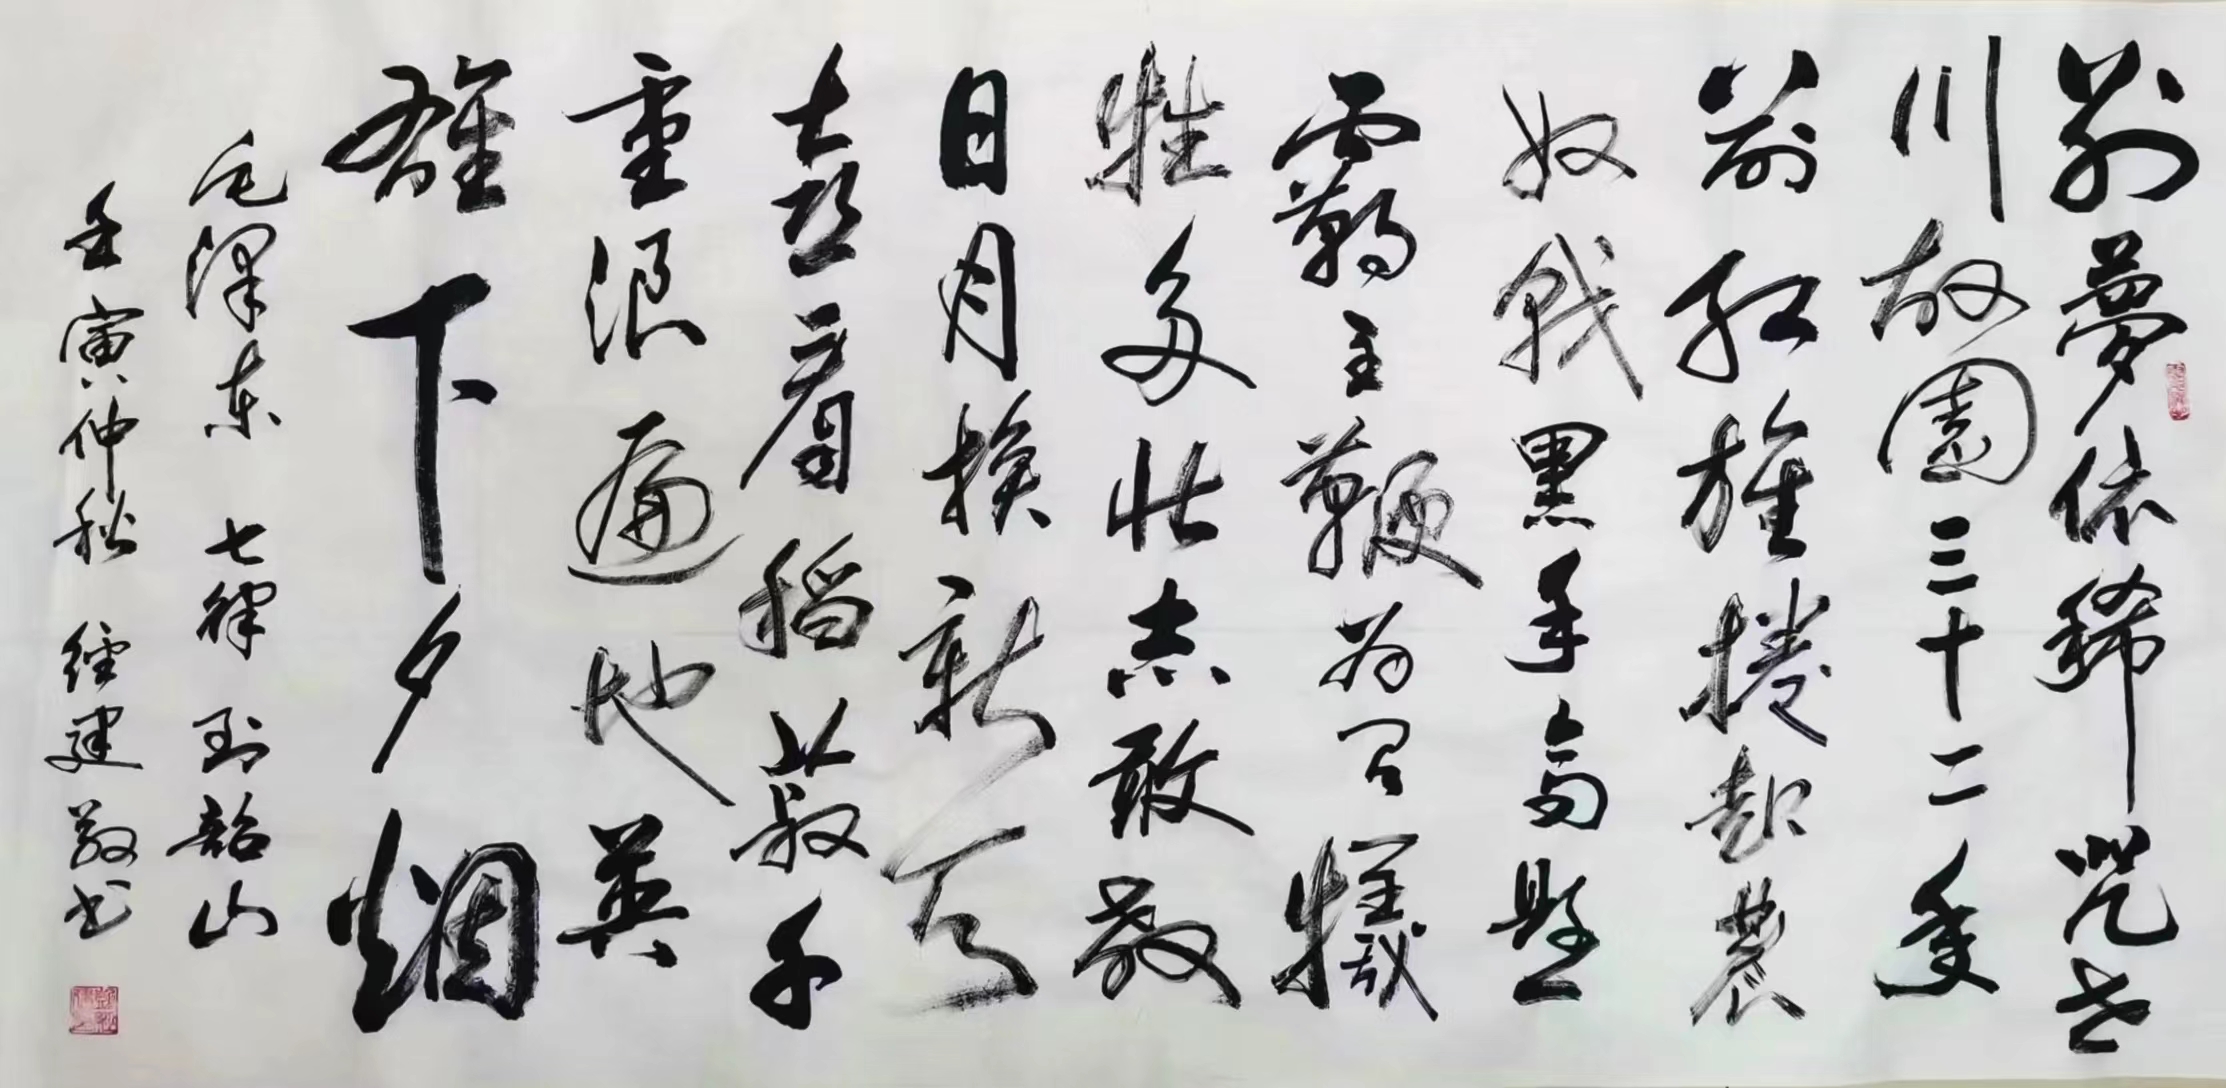 别夢依稀咒逝
川故園三十二年
前紅旗捲起農
奴戟黑手高懸
霸主鞭为有犧
牲多壯志敢教
日月換新天
喜看稻菽千
重浪遍地英
雄下夕烟
毛澤東 七律 到韶山
壬寅仲秋 經建敬书